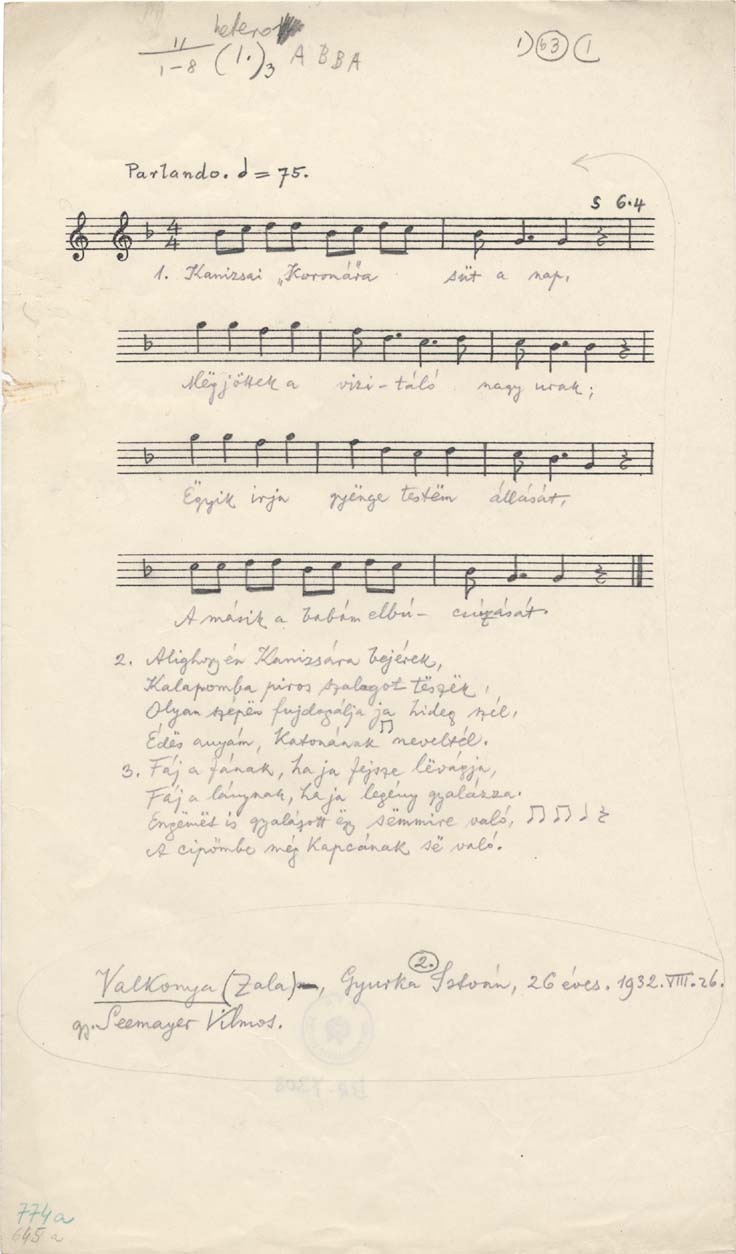 hetero
11
1-8 (1.)3 A B B A
1) 63 (1
Parlando. = 75.
S 6.4
4
4
1. Kanizsai „Koronára" süt a nap,
Mëgjöttek a vizi-táló nagy urak;
Ëgyik irja gyënge testëm állását,
A másik a babám elbú- csúzását.
2. Alighogy én Kanizsára bejérek,
Kalapomba piros szalagot tëszëk,
Olyan szépën fujdogálja ja hideg szél,
Édës anyám, Katonának neveltél.
3. Fáj a fának, ha ja fejsze lëvágja,
Fáj a lánynak, ha ja legény gyalázza.
Engëmët is gyalázott ëgy sëmmire való,
A cipőmbe még Kapcának së való.
2.
Valkonya (Zala), Gyurka István, 26 éves. 1932. VIII. 26.
gy. Seemayer Vilmos.
774a
645a